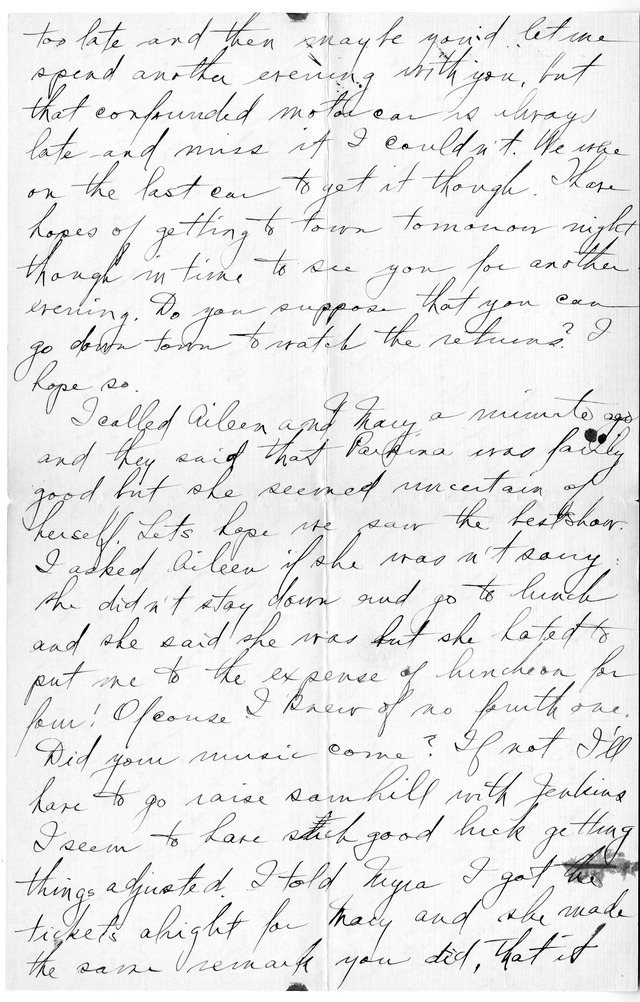 too late and then maybe you'd let me
spend another evening with you, but
that confounded motor car is always
late and miss it I couldn't. We were
on the last car to get it though. I have
hopes of getting to town tomorrow night
though in time to see you for another
evening. Do you suppose that you can
go down town to watch the returns? I
hope so.
I called Aileen and Mary a minute ago
and they said that Parkina was fairly
good but she seemed uncertain of
herself. Let's hope we saw the best show.
I asked Aileen if she was n't sorry
she didn't stay down and go to lunch
and she said she was but she hated to
put me to the expense of luncheon for
four! Of course I knew of no fourth one.
Did your music come? If not I'll
have to go raise samhill with Jenkins
I seem to have such good luck getting
things adjusted. I told Myra I got the
tickets alright for Mary and she made
the same remark you did, that it